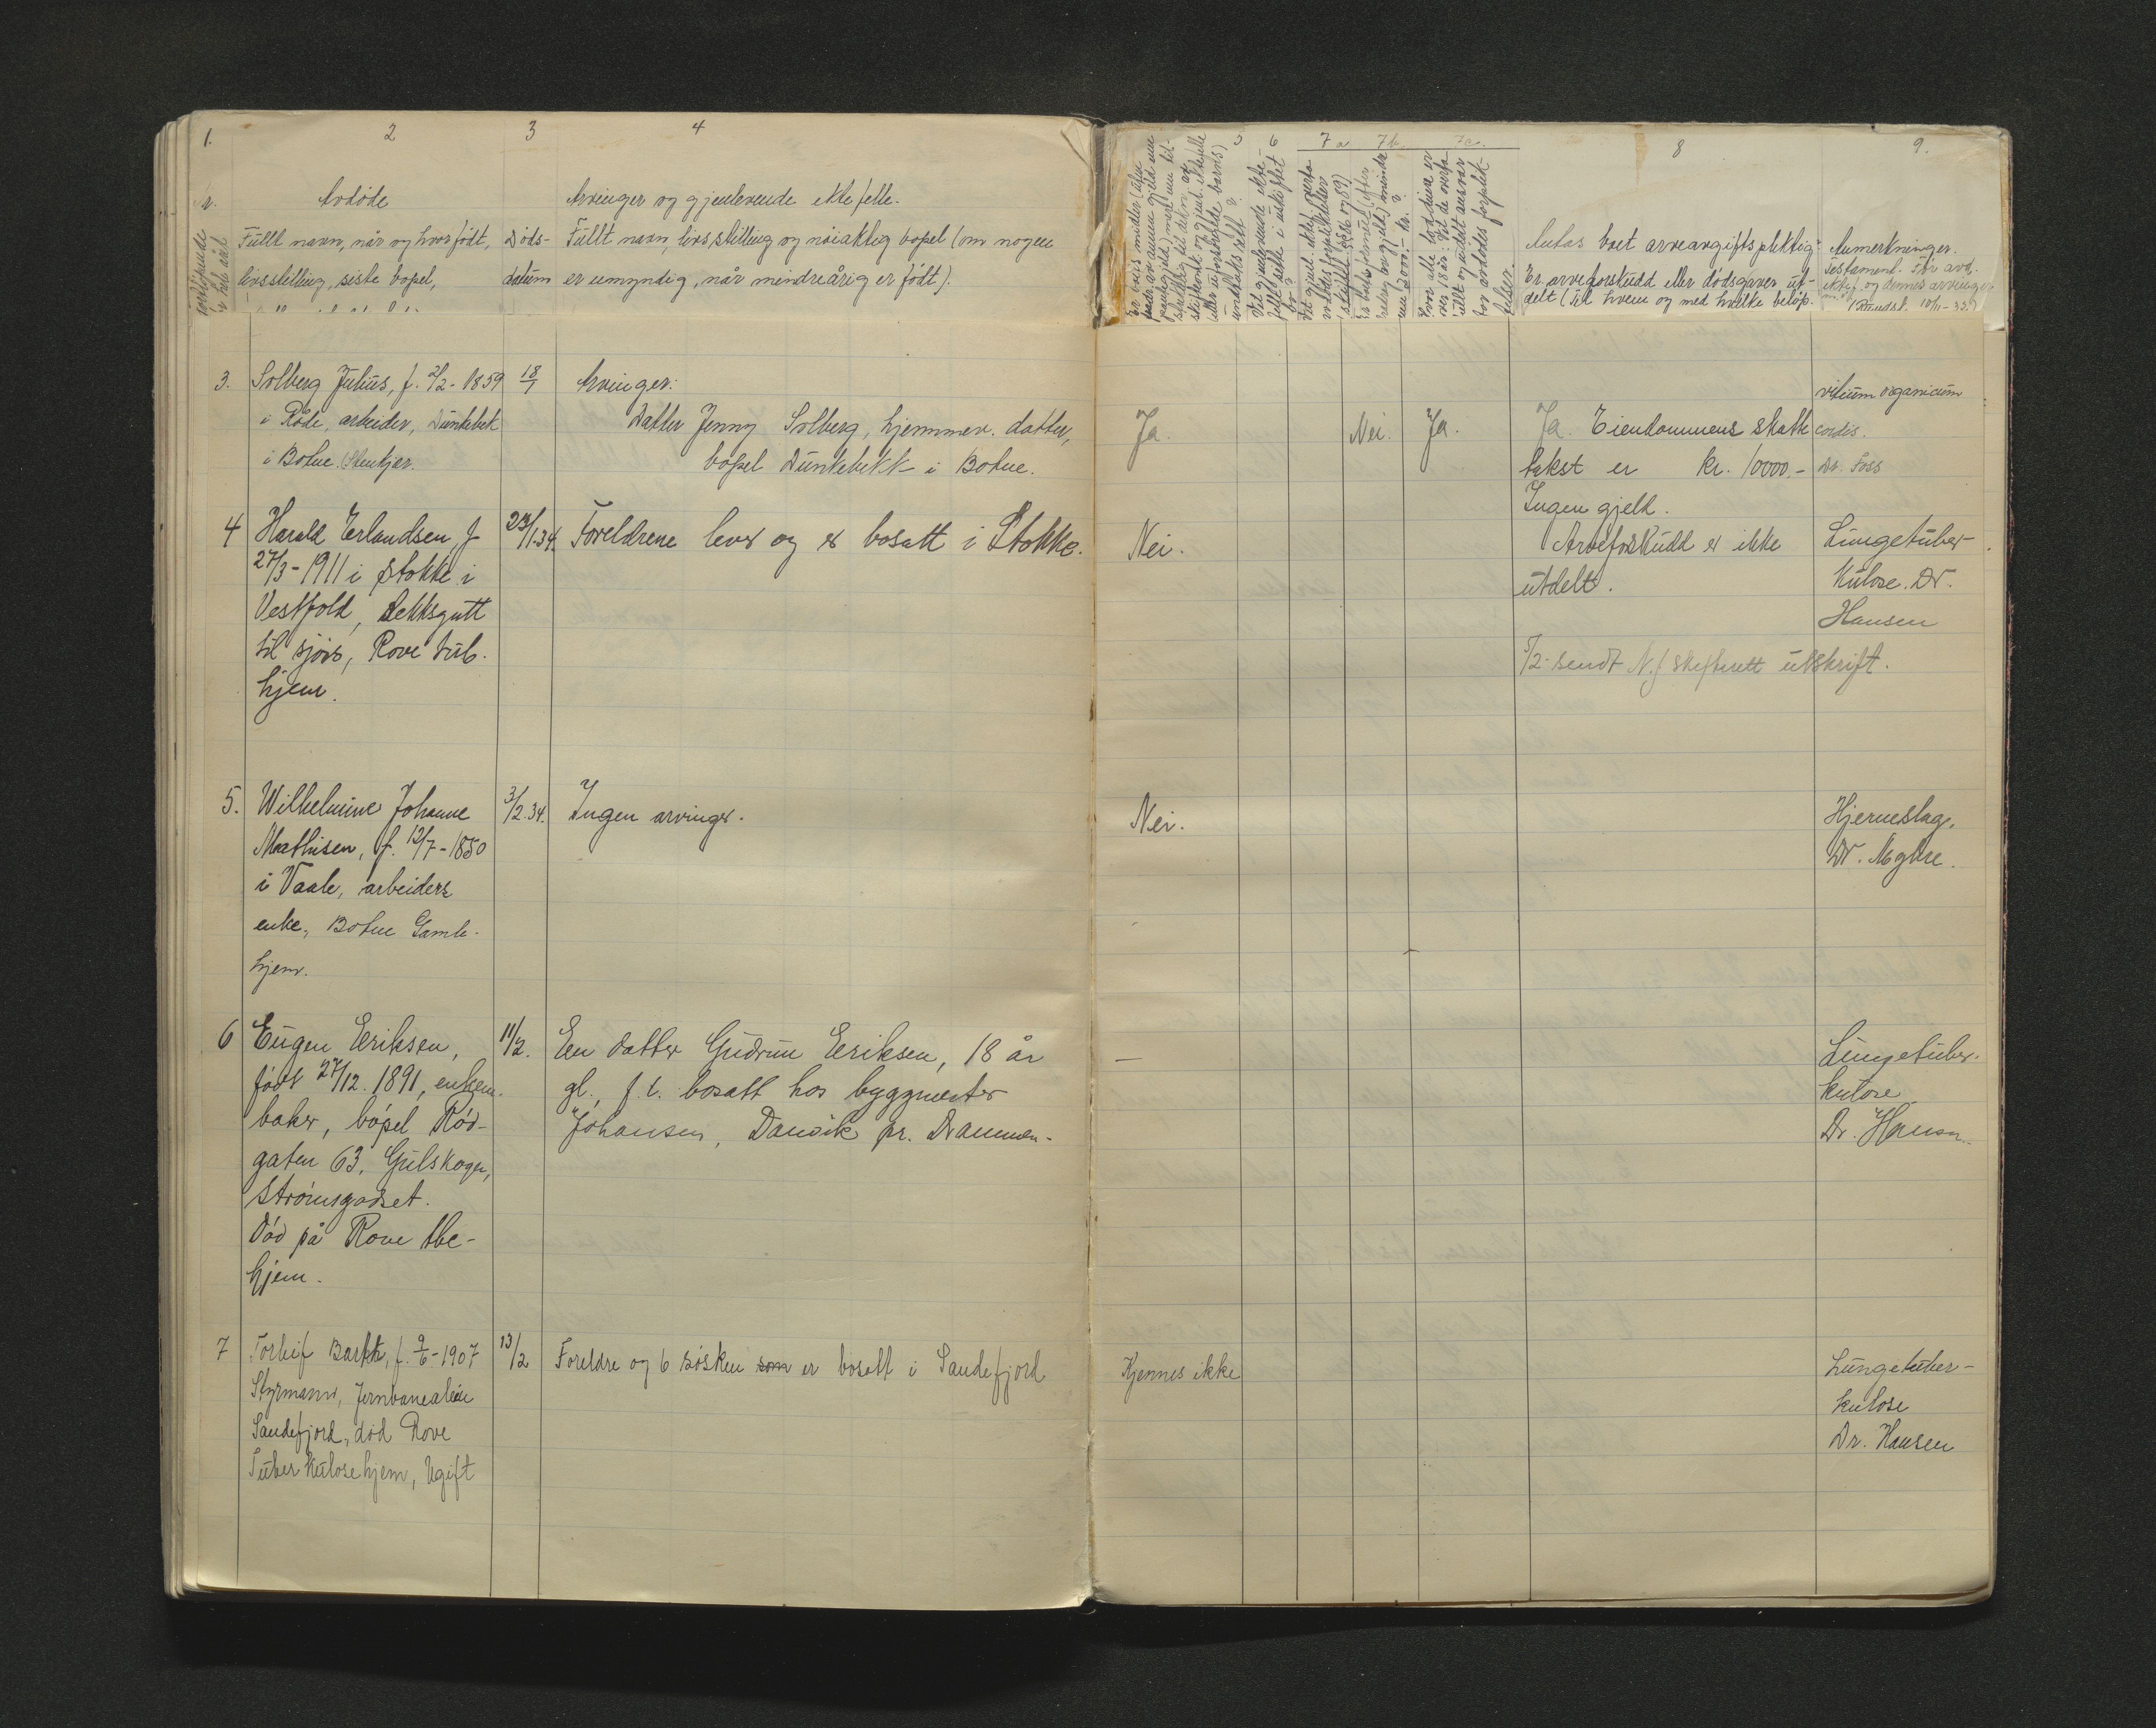 1. 2 3 4
Nr. Avdöde Arvinger og gjenlevende ektefelle.
Fullt navn, når og hvor født, Döds- Fullt navn, livsstilling og nöiaktig bopel (om nogen
livsstilling, siste bopel, datum er umyndig, når mindreårig er född).
3. Solberg Julius, f. 2/2-1859 18/1 Arvinger:
i Råde, arbeider, Dunkebek Datter Jenny Solberg, hjemmev. datter,
i Botne. bopel Dunkebekk i Botne.
4 Harald Erlandsen, f 23/1.34. Foreldrene lever og er bosatt i Stokke.
27/3-1911 i Stokke i
Vestfold, dekksgutt
til sjøs, Rove tub.
hjem.
5. Wilhelmine Johanne 3/2.34. Ingen arvinger.
Mathisen, f. 12/7-1850
i Vaale, arbeiders
enke, Botne Gamle-
hjem.
6 Eugen Eriksen, 11/2. En datter Gudrun Eriksen, 18 år
född 27/12.1891, enkem. gl., f.t. bosatt hos byggmester
baker, bopel Rød- Johansen, Danvik pr. Drammen.
gaten 63, Gulskogen,
Strømsgodset.
Död på Rove tbc-
hjem.
7 Torleif 9/6-1907 13/2 Foreldre og 6 søsken som er bosatt i Sandefjord
Styrmann, Jernbanealleen
Sandefjord, död Rove
Tuberkulosehjem, Ugift
5 6 7a 7b 7c. 8 9.
Antas boet arveavgiftspliktig? Anmerkninger.
Er arveforskudd eller dödsgaver ut-
delt (til hvem og med hvilke belöp. 10/11-33.)
vitium organicum
Ja. Nei. Ja. Ja. Eiendommens skatte cordis.
takst er kr. 10000,- Dr. Foss
Ingen gjeld.
Nei. Arveforskudd er ikke Lungetuber-
utdelt. kulose. Dr.
Hansen
5/2 sendt N.J. skifterett utskrift.
Nei. Hjerneslag.
Dr.
— Lungetuber-
kulose
Dr. Hansen.
Kjennes ikke Lungetuber-
kulose
Dr. Hansen